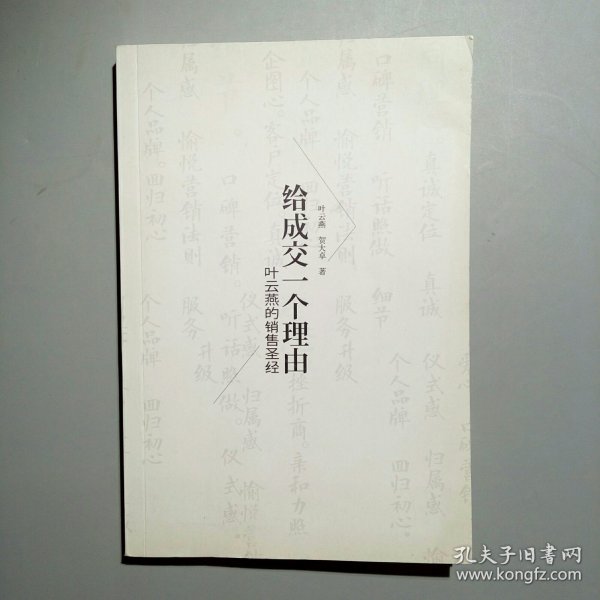 给成交一个理由
叶云燕的销售圣经
叶云燕 贺大卓 著
口碑营销 听话照做 细节
真诚定位 真诚 仪式感 归属感 愉
归属感 愉悦营销法则 服务升级
个人品牌 回归初心
企图心。客户定位
口碑营销。听话照做。仪式感。
仪式感 归属感 愉悦营销
挫折商。亲和力 照
个人品牌。回归初心
个人品牌 回归初心。
孔夫子旧书网
www.kongfz.com